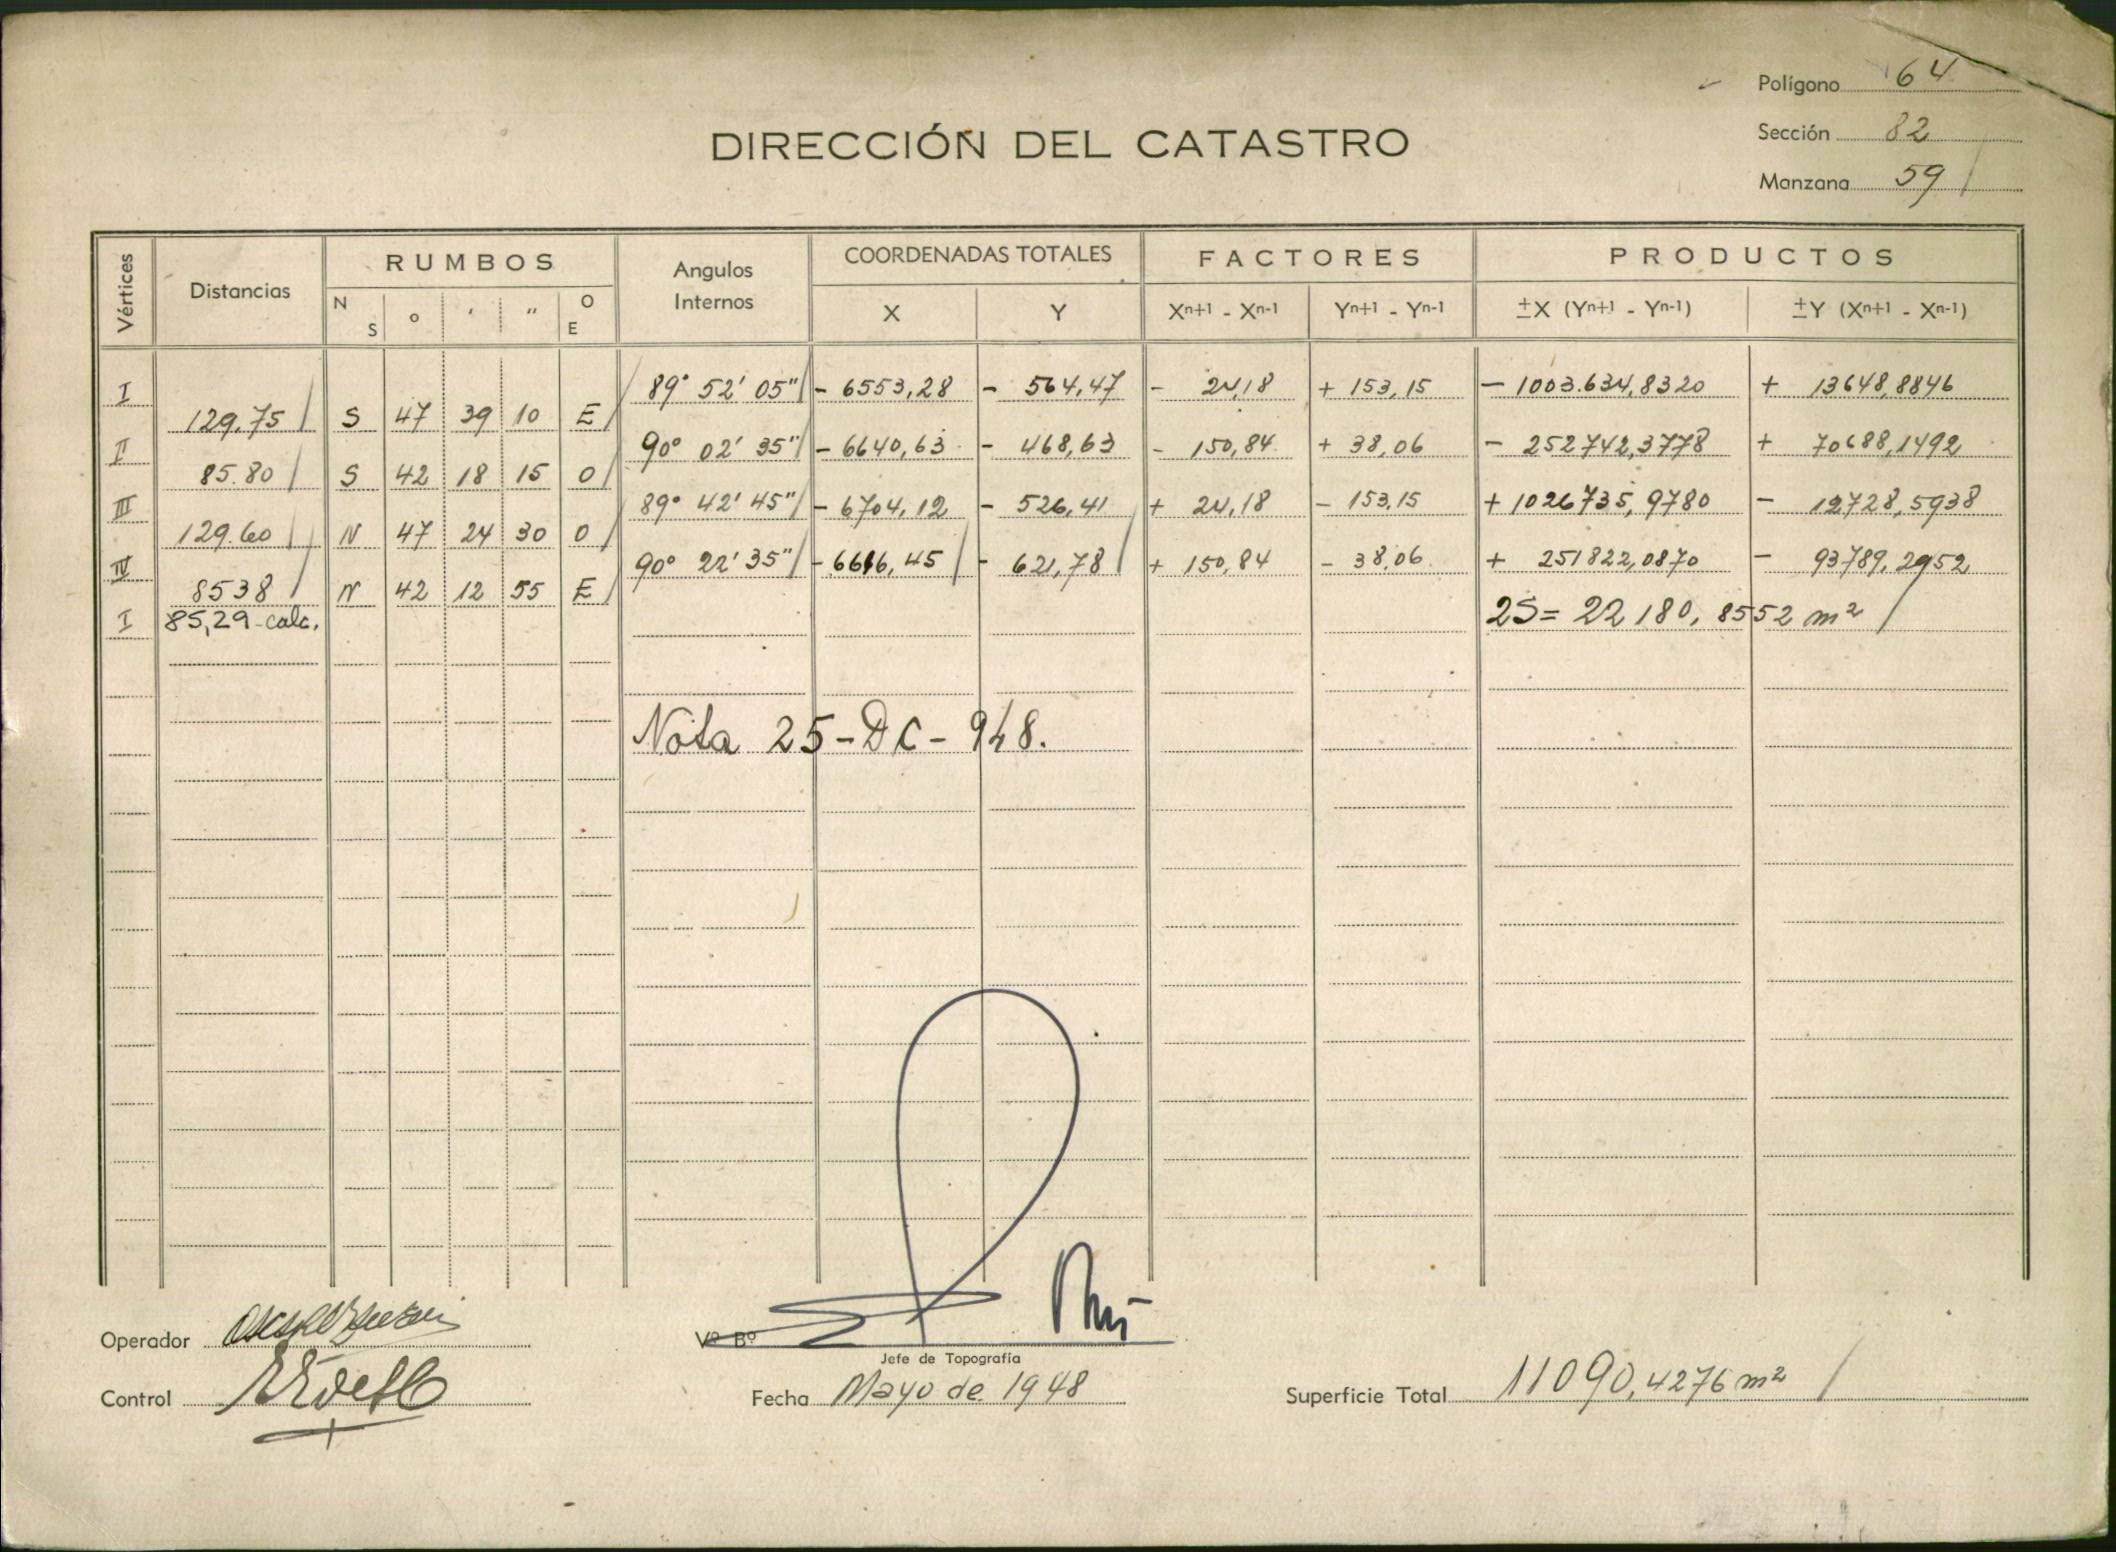 Polígono 64
DIRECCIÓN DEL CATASTRO
Sección 82
Manzana 59
Vértices Distancias RUMBOS Angulos Internos COORDENADAS TOTALES FACTORES PRODUCTOS
N S o ' '' O E X Y Xn+1 - Xn-1 Yn+1 - Yn-1 ±X (Yn+1 - Yn-1) ±Y (Xn+1 - Xn-1)
I 89° 52' 05" - 6553,28 - 564,47 - 24,18 + 153,15 - 1003.634,8320 + 13648,8846
129.75 S 47 39 10 E
II 90° 02' 35" - 6640,63 - 468,63 - 150,84 + 38,06 - 252742,3778 + 70688,1492
85.80 S 42 18 15 O
III 89° 42' 45" - 6704,12 - 526,41 + 24,18 - 153,15 + 1026735,9780 - 12728,5938
129.60 N 47 24 30 O
IV 90° 22' 35" - 6616,45 - 621,78 + 150,84 - 38,06 + 251822,0870 - 93789,2952
85 38 N 42 12 55 E
I 85,29 - calc. 2S = 22180,8552 m²
Nota 25-DC-948.
Operador
Vº Bº
Jefe de Topografía
Control
Fecha Mayo de 1948
Superficie Total 11090,4276 m²